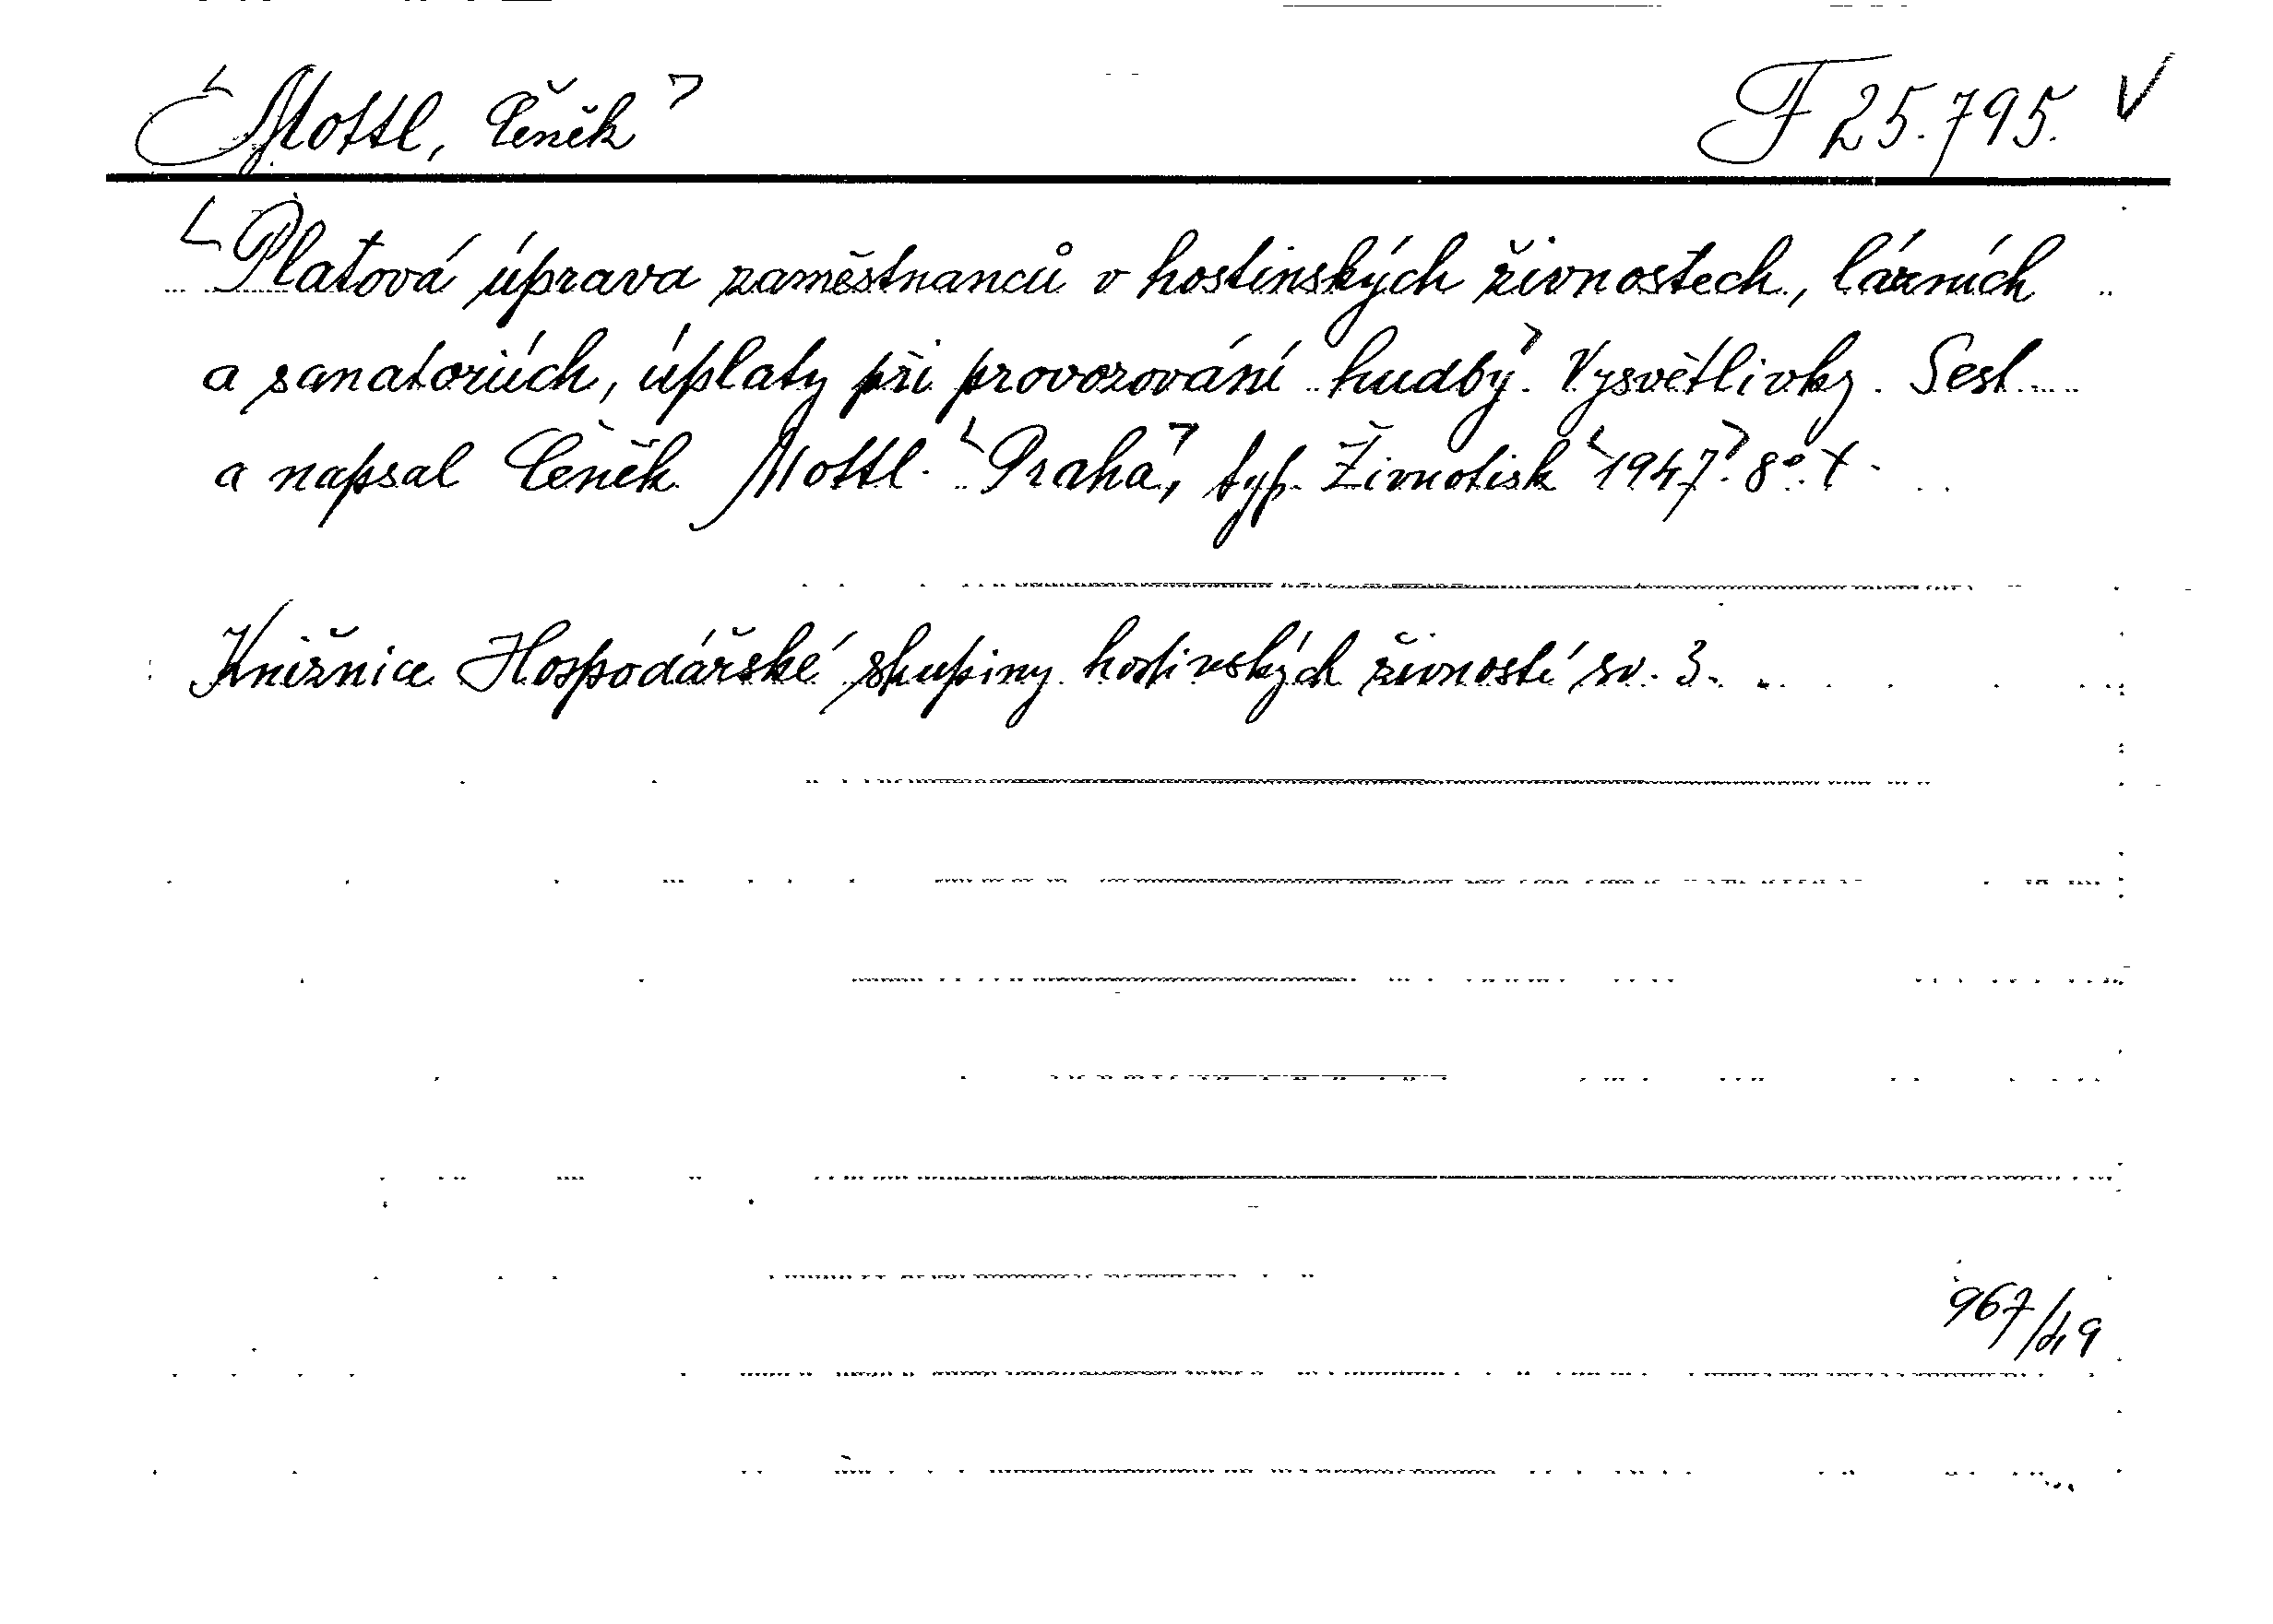 Mottl, Čeněk F 25.795. V
Platová úprava zaměstnanců v hostinských živnostech, lázních
a sanatoriích, úplaty při provozování hudby. Vysvětlivky. Sest.
a napsal Čeněk Mottl. Praha, typ. Živnotisk 1947. 8°.
Knižnice Hospodářské skupiny hostinských živností sv. 3.
967/49